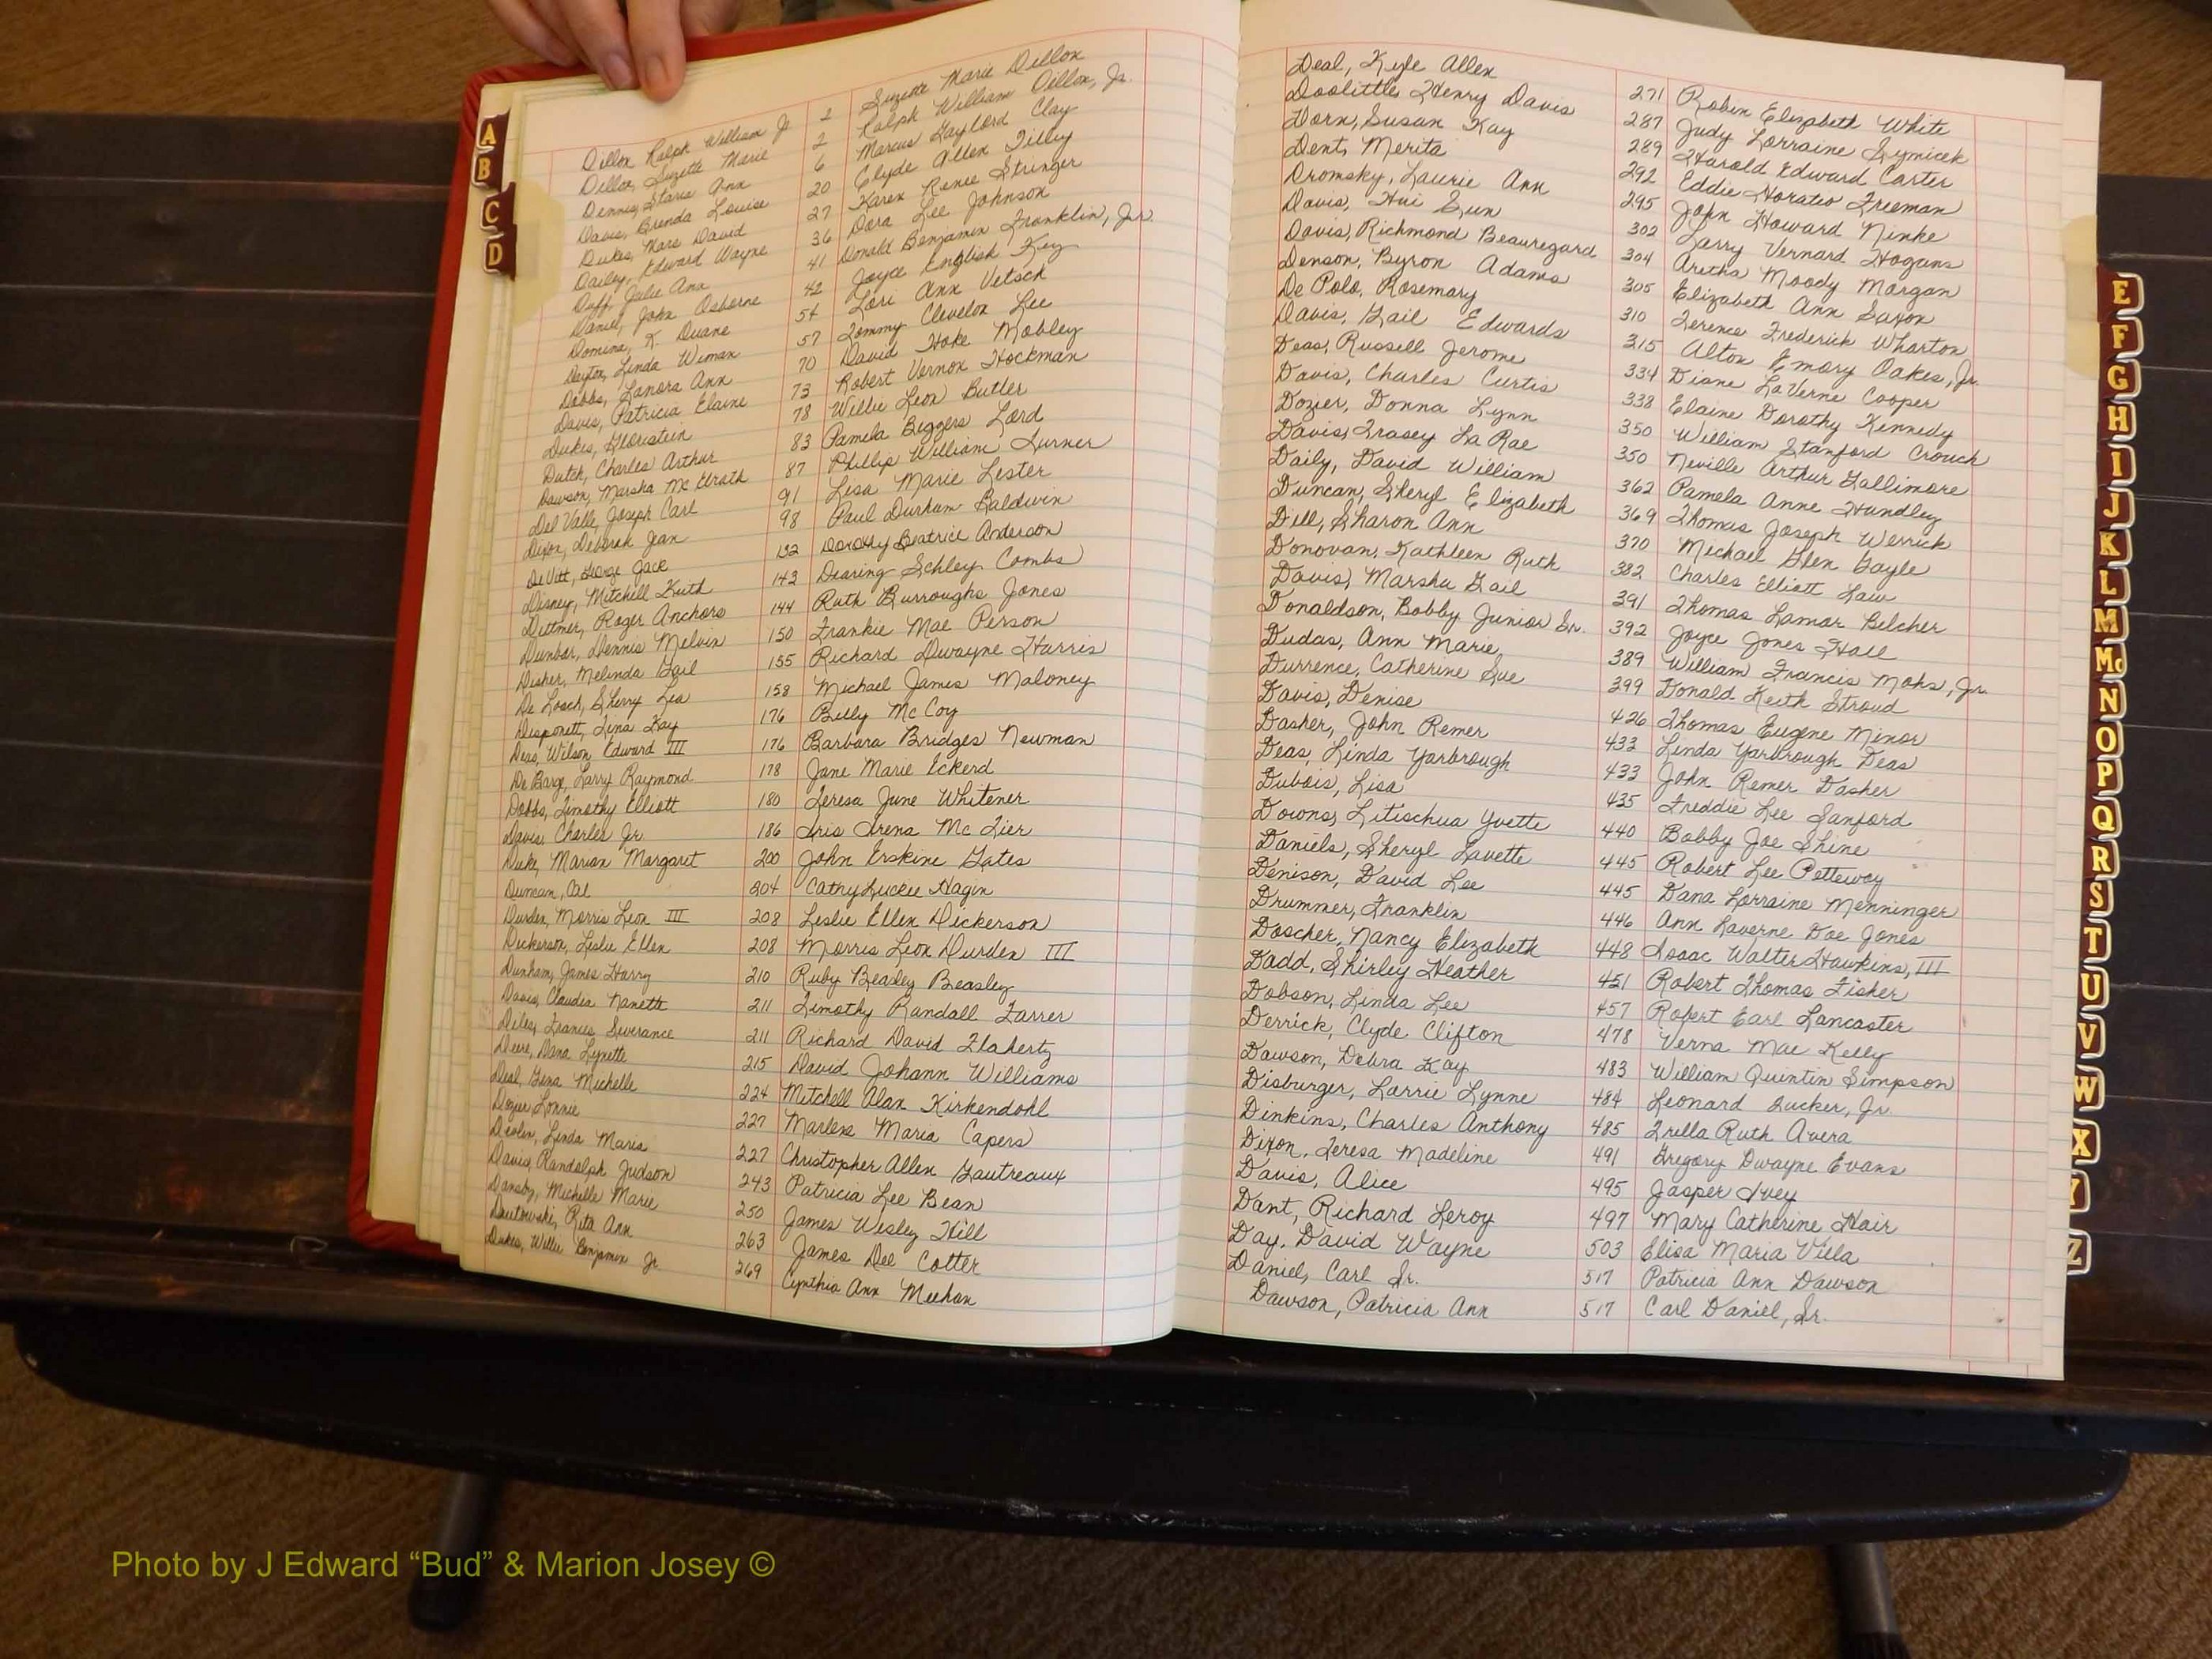 A
B
C
D
Dillon Ralph William Jr. 2 Suzette Marie Dillon
Dillon, Suzette Marie 2 Ralph William Dillon, Jr.
Dennis, Staria Ann 6 Marcus Gaylord Clay
Davis, Brenda Louise 20 Clyde Allen Tilly
Dukes, Marc David 27 Karen Renee Stringer
Dailey, Edward Wayne 36 Dora Lee Johnson
Duff, Julie Ann 41 Donald Benjamin Franklin, Jr.
Daniel, John Osborne 42 Joyce English Key
Domina, K. Duane 54 Lori Ann Vetsch
Dayton, Linda Wiman 57 Tommy Clevelon Lee
Dobbs, Lanora Ann 70 David Hoke Mobley
Davis, Patricia Elaine 73 Robert Vernon Hockman
Dukes, Gloristein 78 Willie Leon Butler
Dutch, Charles Arthur 83 Pamela Biggers Lord
Dawson, Marsha McElrath 87 Phillip William Turner
Del Valle, Joseph Carl 91 Lisa Marie Lester
Dixon, Deborah Jan 98 Paul Durham Baldwin
DeVitt, George Jack 132 Dorothy Beatrice Anderson
Disney, Mitchell Keith 143 Dearing Schley Combs
Dittmer, Roger Anchors 144 Ruth Burroughs Jones
Dunbar, Dennis Melvin 150 Frankie Mae Person
Disher, Melinda Gail 155 Richard Dwayne Harris
De Losch, Sherry Lea 158 Michael James Maloney
Desponett, Tina Kay 176 Billy McCoy
Deas, Wilson Edward III 176 Barbara Bridges Newman
De Barge, Larry Raymond 178 Jane Marie Eckerd
Dobbs, Timothy Elliott 180 Teresa June Whitener
Davis, Charles Jr. 186 Iris Irena McTier
Duke, Marian Margaret 200 John Erskine Gates
Duncan, Cal 204 Cathy Luckie Hagin
Durden, Morris Leon III 208 Leslie Ellen Dickerson
Dickerson, Leslie Ellen 208 Morris Leon Durden III
Dunham, James Harry 210 Ruby Beasley Beasley
Davis, Claudia Nanette 211 Timothy Randall Farrer
Diles, Frances Severance 211 Richard David Flahertz
Deere, Dana Lynette 215 David Johann Williams
Deal, Gena Michelle 224 Mitchell Alan Kirkendohl
Dozier Lonnie 227 Marlene Maria Capers
Devlin, Linda Maria 227 Christopher Allen Gautreaux
Davis, Randolph Judson 243 Patricia Lee Bean
Dansby, Michelle Marie 250 James Wesley Hill
Rita Ann 263 James Dee Cotter
Dukes, Willie Benjamin Jr. 269 Cynthia Ann Meehan
Deal, Kyle Allen 271 Robin Elizabeth White
Doolittle, Henry Davis 287 Judy Lorraine Symicek
Dorn, Susan Kay 289 Harold Edward Carter
Dent, Merita 292 Eddie Horatio Freeman
Dromsky, Laurie Ann 295 John Howard Ninke
Davis, Hui Sun 302 Larry Vernard Hogans
Davis, Richmond Beauregard 304 Aretha Moody Morgan
Denson, Byron Adams 305 Elizabeth Ann Saxon
De Polo, Rosemary 310 Terence Frederick Wharton
Davis, Gail Edwards 315 Alton Emory Oakes, Jr.
Deas, Russell Jerome 334 Diane LaVerne Cooper
Davis, Charles Curtis 338 Elaine Dorothy Kennedy
Dozier, Donna Lynn 350 William Stanford Crouch
Davis, Trasey La Rae 350 Neville Arthur Gallimore
Daily, David William 362 Pamela Anne Hundley
Duncan, Sheryl Elizabeth 369 Thomas Joseph Werrick
Dill, Sharon Ann 370 Michael Glen Gayle
Donovan, Kathleen Ruth 382 Charles Elliott Law
Davis, Marsha Gail 391 Thomas Lamar Belcher
Donaldson, Bobby Junior Sr. 392 Joyce Jones Hall
Dudas, Ann Marie 389 William Francis Mohs, Jr.
Durrence, Catherine Sue 399 Donald Keith Stroud
Davis, Denise 426 Thomas Eugene Minor
Dasher, John Remer 433 Linda Yarbrough Deas
Deas, Linda Yarbrough 433 John Remer Dasher
Dubois, Lisa 435 Freddie Lee Sanford
Downs, Litischua Yvette 440 Bobby Joe Shine
Daniels, Sheryl Lavette 445 Robert Lee Petteway
Denison, David Lee 445 Dana Lorraine Menninger
Drummer, Franklin 446 Ann Laverne Doe Jones
Doscher, Nancy Elizabeth 448 Isaac Walter Hawkins, III
Dadd, Shirley Heather 451 Robert Thomas Fisher
Dobson, Linda Lee 457 Robert Earl Lancaster
Derrick, Clyde Clifton 478 Verna Mae Kelly
Dawson, Debra Kay 483 William Quintin Simpson
Disburger, Larrie Lynne 484 Leonard Tucker, Jr.
Dinkins, Charles Anthony 485 Trella Ruth Avera
Dixon, Teresa Madeline 491 Gregory Dwayne Evans
Davis, Alice 495 Jasper Ivey
Dant, Richard Leroy 497 Mary Catherine Hair
Day, David Wayne 503 Elisa Maria Villa
Daniel, Carl Sr. 517 Patricia Ann Dawson
Dawson, Patricia Ann 517 Carl Daniel, Sr.
E
F
G
H
I
J
K
L
M
Mc
N
O
P
Q
R
S
T
U
V
W
X
Y
Z
Photo by J Edward “Bud” & Marion Josey ©